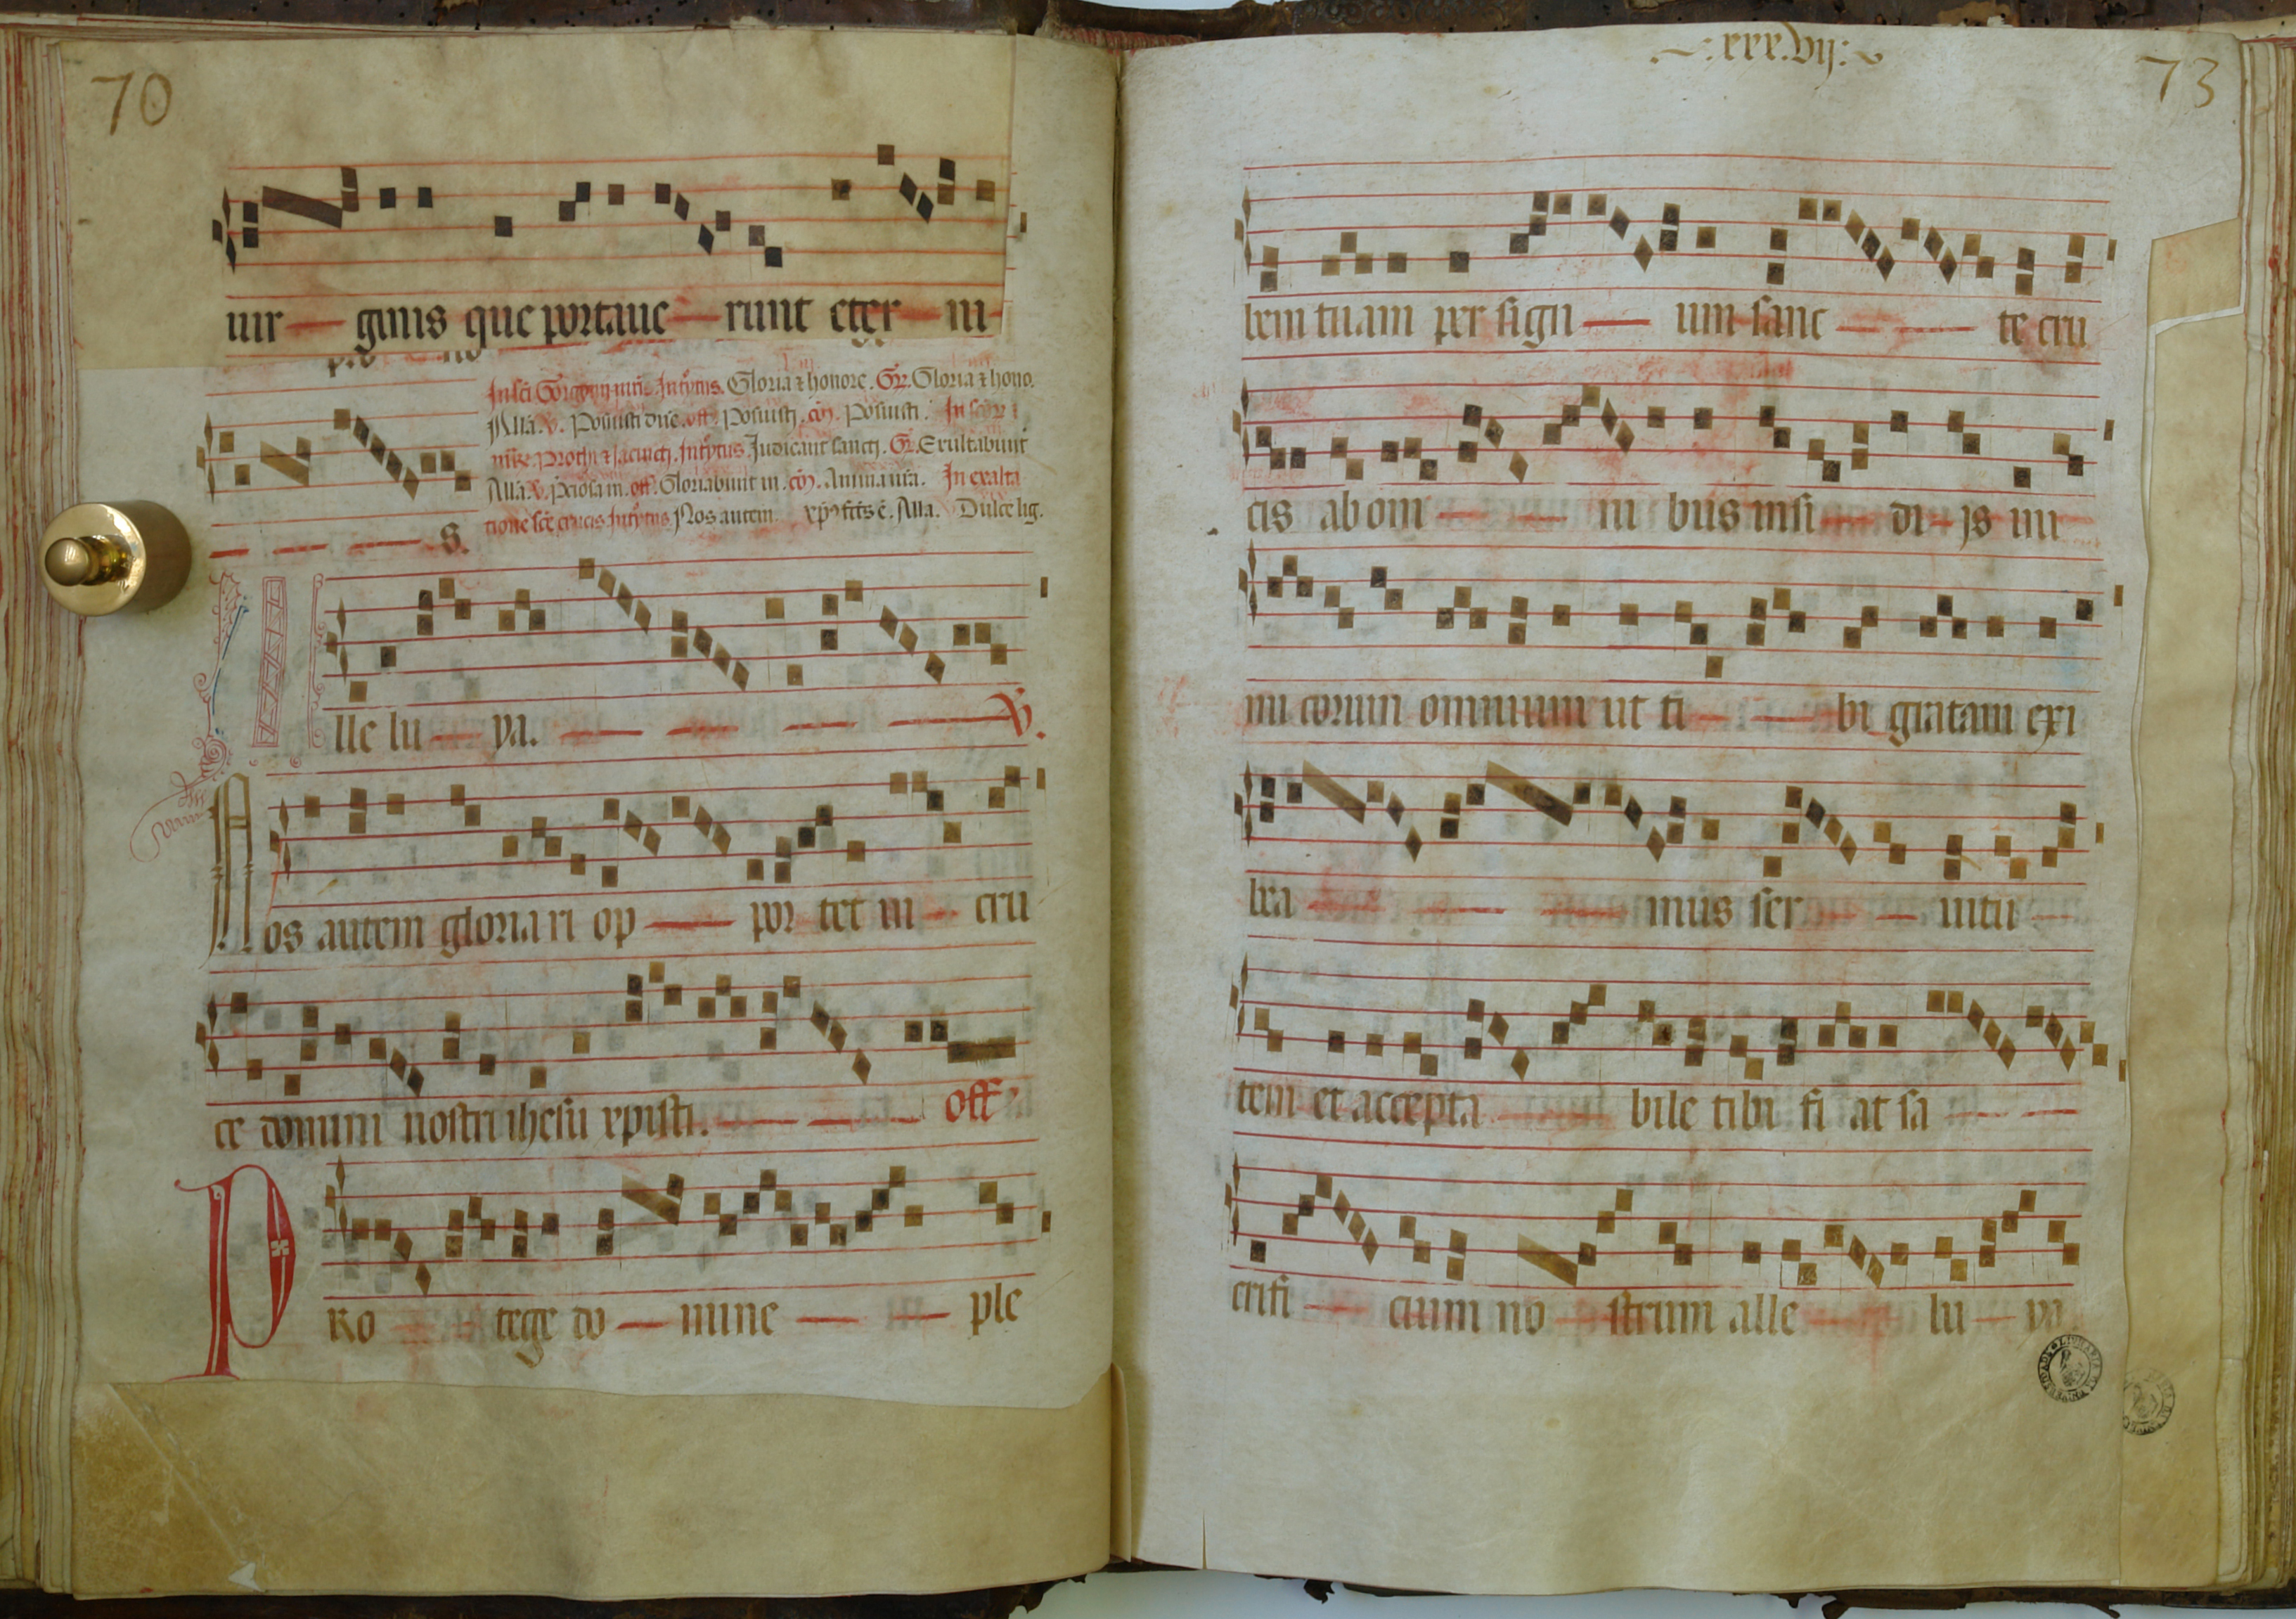 70
uir ginis que portaue runt eter ni
In sci Gorgonij mris. Introitus. Gloria & honore. Gr. Gloria & hono.
Alla. v. Posuisti dne. off. Posuisti. cō. Posuisti. In scōr
Prothi & Jacincti. Introitus. Judicant sancti. Gr. Exultabunt
Alla. v. p̄ciosa in. off. Gloriabunt in. cō. Anima nra. In exalta
tione sce crucis Introitus. Nos autem. xp̄s fcts ē. Alla. Dulce lig.
s.
Alle lu ya. V.
Nos autem gloria ri op por tet in cru
ce domini nostri ihesu xpisti. off
PRo tege do mine ple
xxx.vij:
73
bem tuam per sign um sanc te cru
cis ab om ni bus insi di js ini
mi corum omnium ut ti bi gratam exi
bea mus ser uitu
tem et accepta bile tibi fi at sa
crifi cium no strum alle lu ya